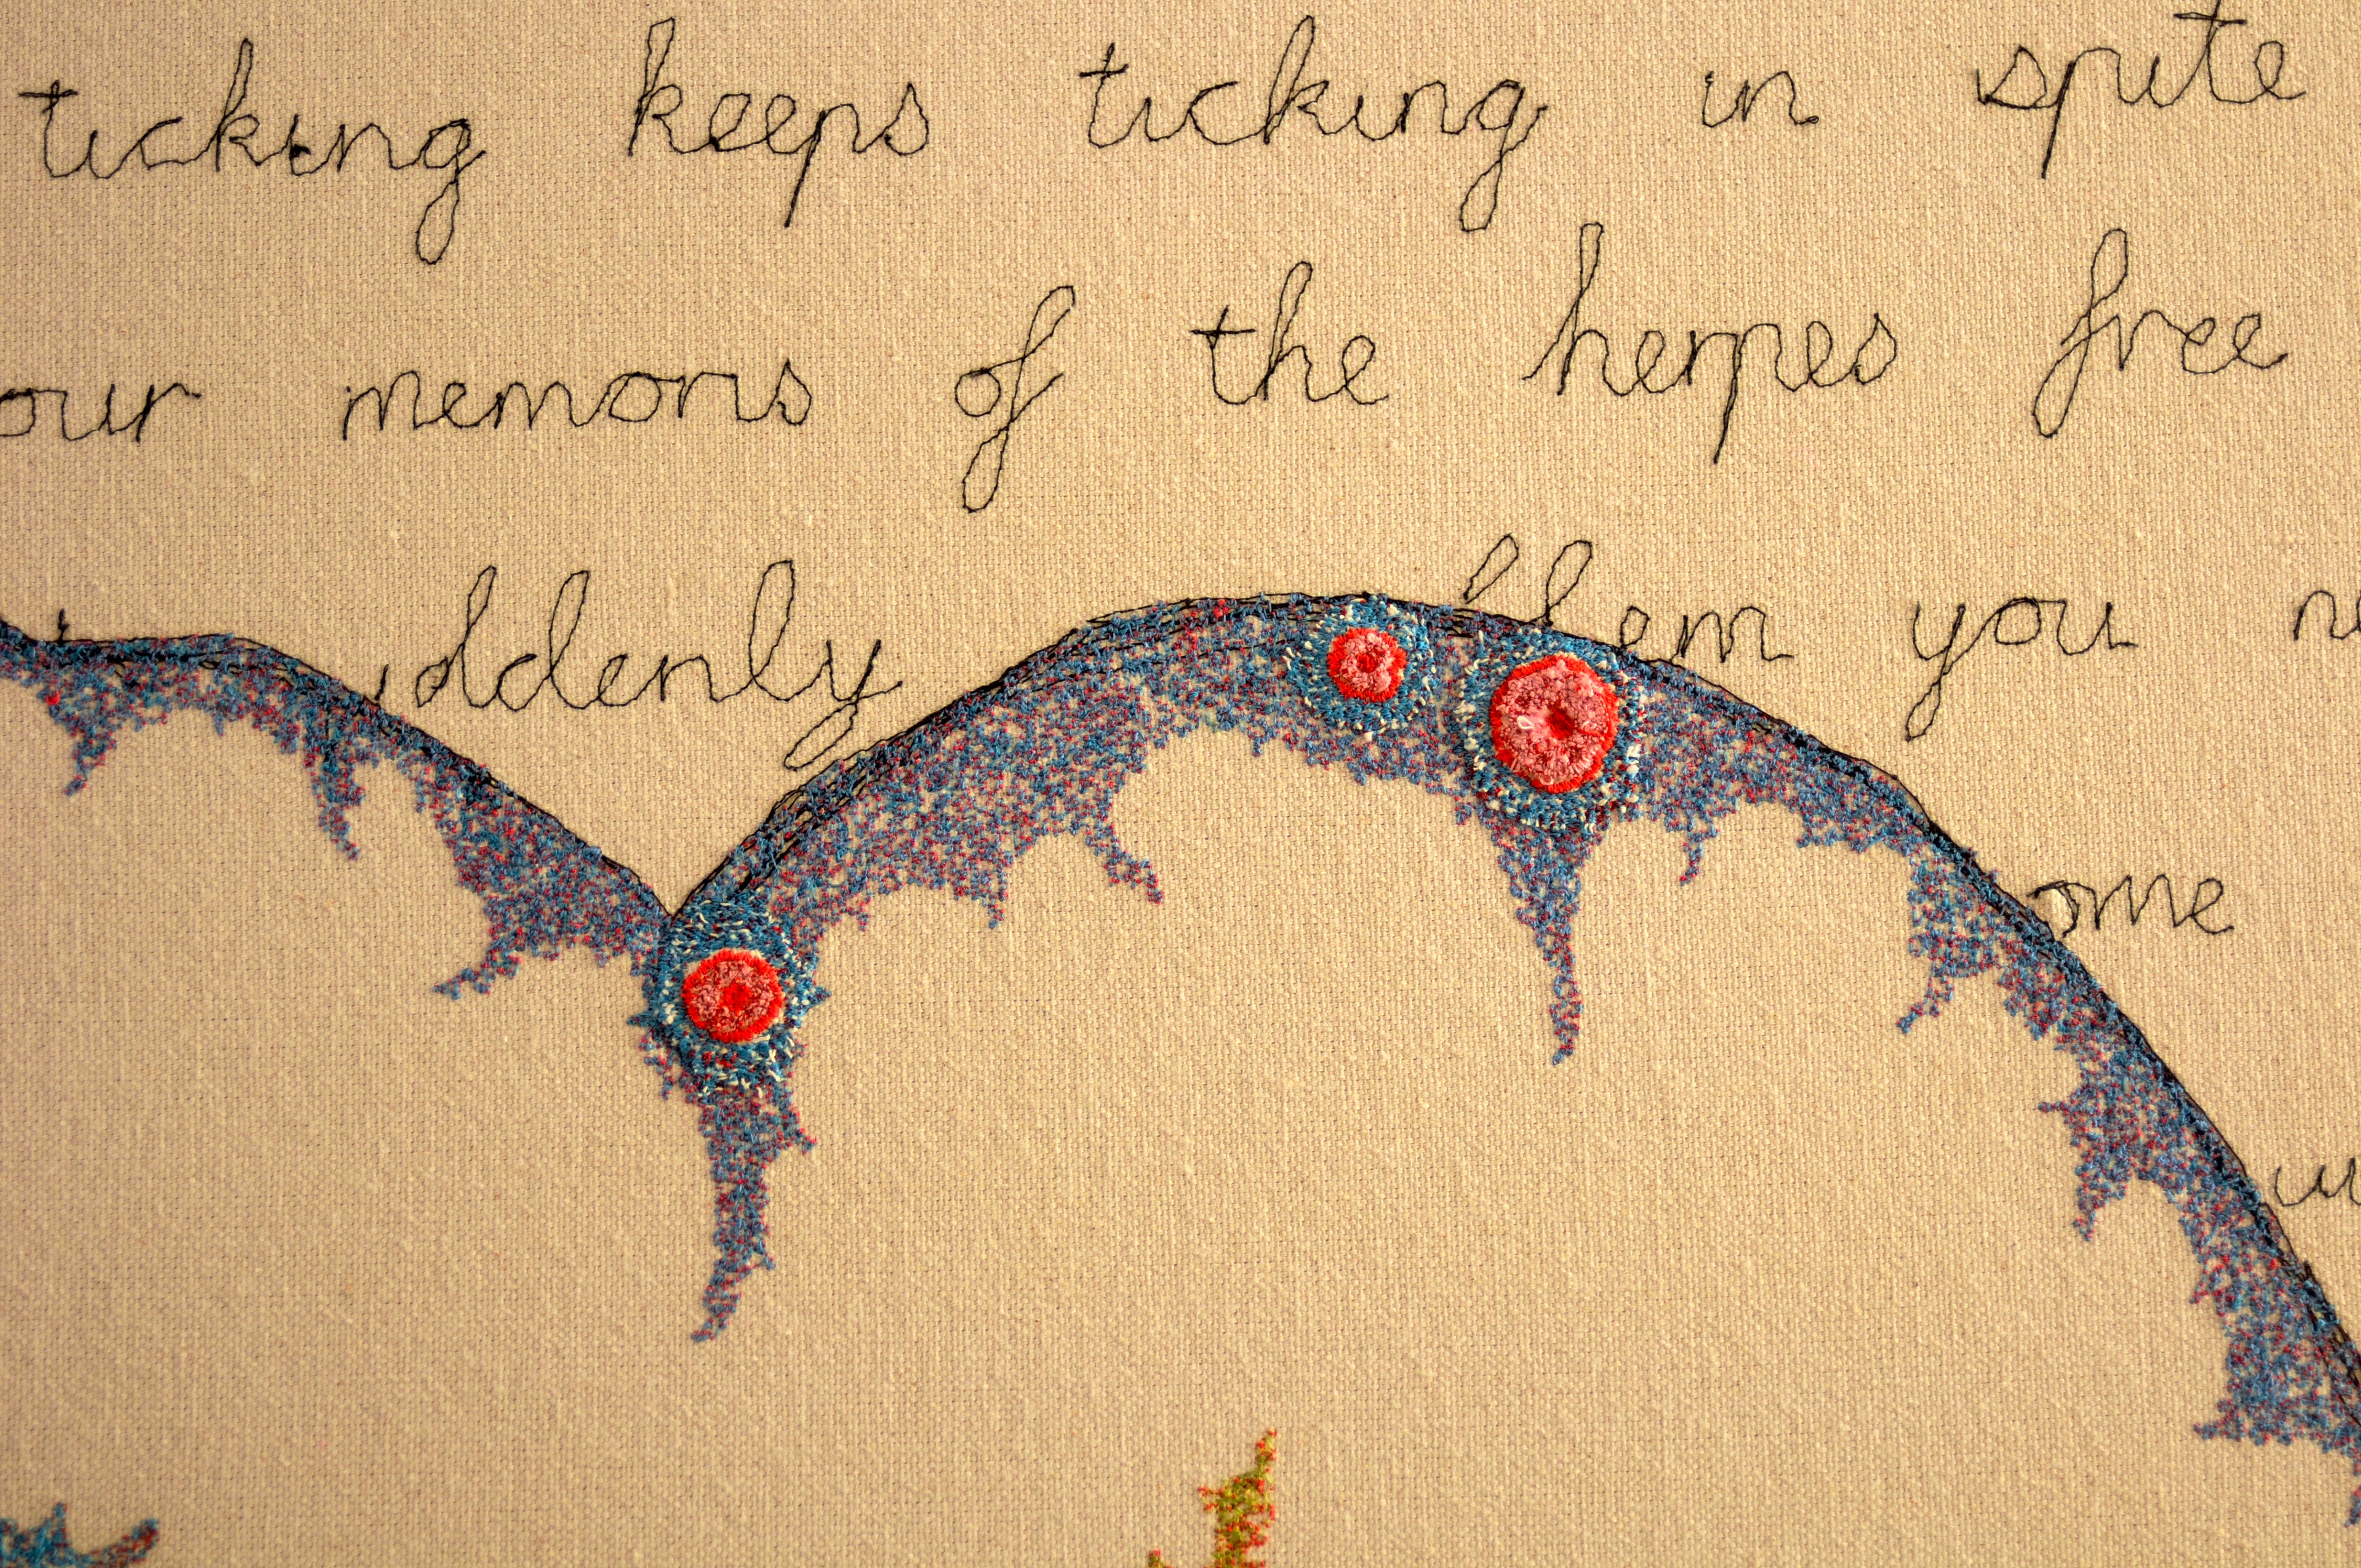 ticking keeps ticking in spite
our memoris of the herpes free
ddenly them you
ome